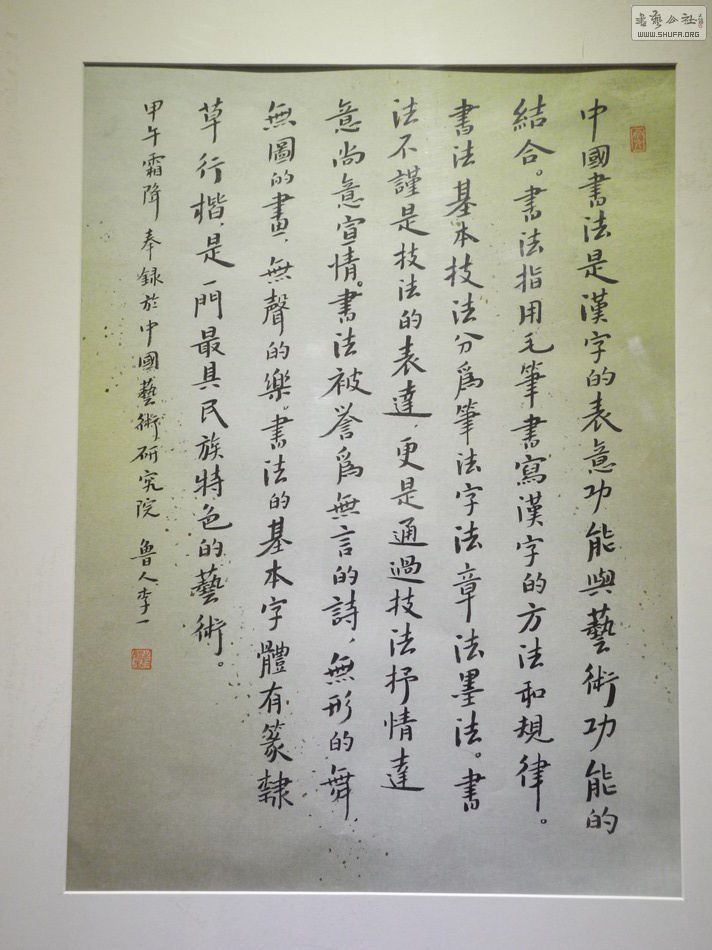 中國書法是漢字的表意功能與藝術功能的
結合。書法指用毛筆書寫漢字的方法和規律。
書法基本技法分爲筆法字法章法墨法。書
法不謹是技法的表達,更是通過技法抒情達
意尚意宣情。書法被誉爲無言的詩,無形的舞
無圖的畫,無聲的樂。書法的基本字體有篆隸
草行楷,是一門最具民族特色的藝術。
甲午霜降奉録於中國藝術研究院 魯人李一
書藝公社
WWW.SHUFA.ORG